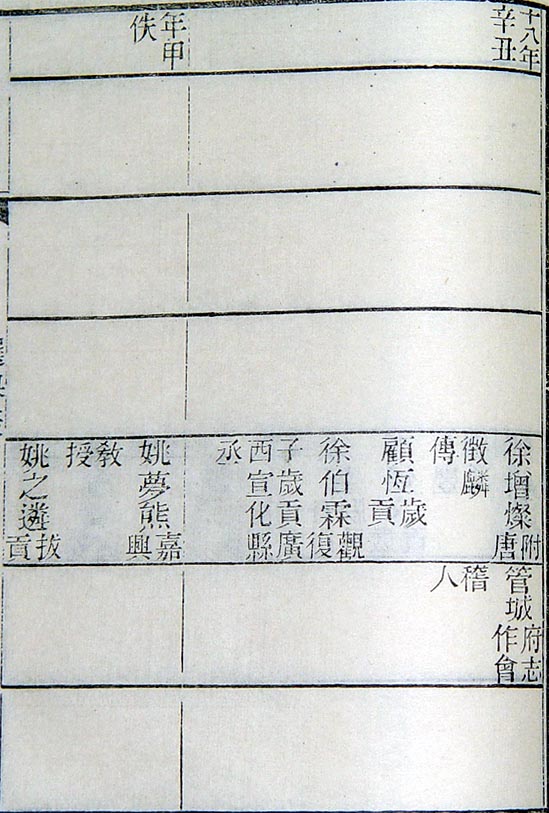 十八年
辛丑
年甲
佚
徐增燦附
唐
徵麟
傳
顧恆歲
貢
徐伯霖觀
復
子歲貢廣
西宣化縣
丞
姚夢熊嘉
興
教
授
姚之遴拔
貢
管城府志
作會
稽
人